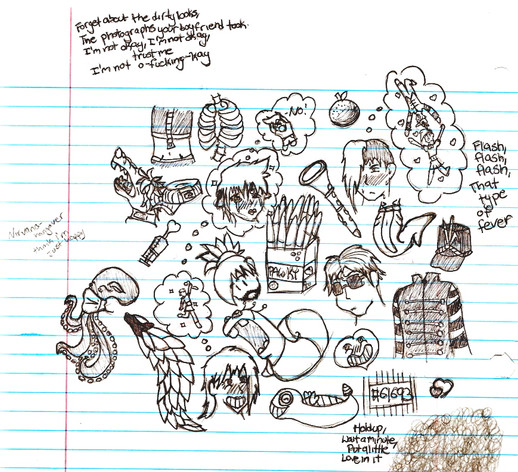 Forget about the dirty looks,
The photographs your boyfriend took.
I'm not okay, I'm not okay,
trust me
I'm not o-fucking-kay
NO!
Flash,
flash,
flash,
That
type
of
fever
Nirvana-
think I'm
just happy
#61693
Hold up,
Wait a minute,
Put a little
Love in it